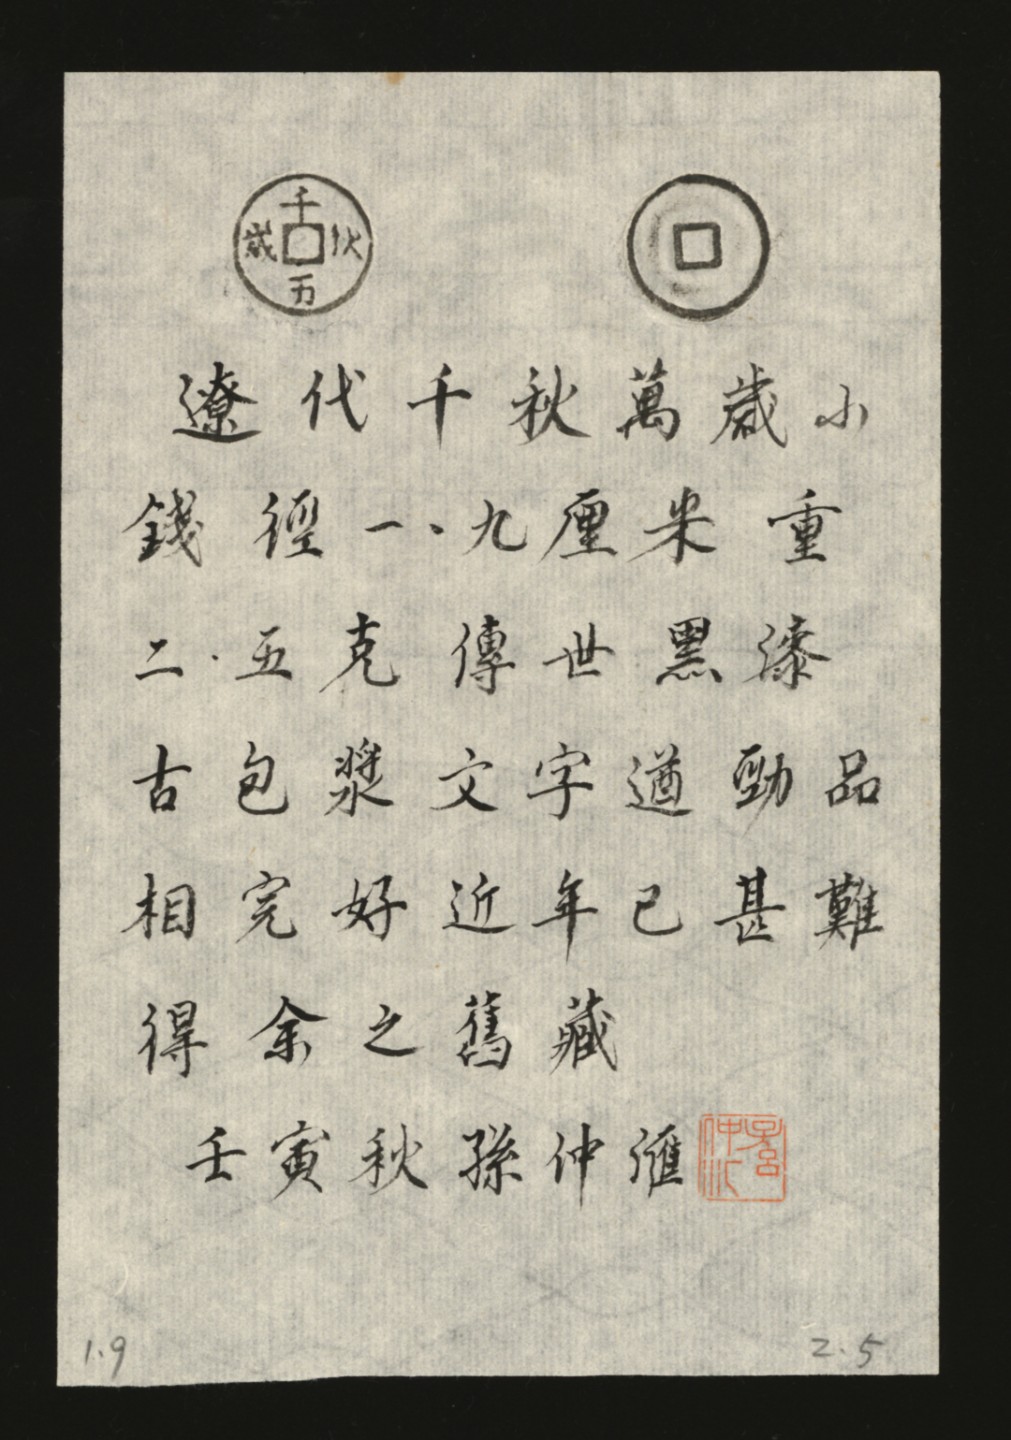 千秋万歲
遼代千秋萬歲小
錢徑一、九厘米重
二.五克傳世黑漆
古包漿文字遒勁品
相完好近年已甚難
得余之舊藏
壬寅秋孫仲匯
1.9 2.5